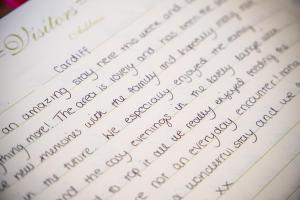 Visitors
Address
Cardiff
an amazing stay here this week and
thing more! The area is lovely and has been the
new memories with the family and hopefully many more
in the future. We especially enjoyed the
and the cosy evenings in the lovely lounge
to top it all we really enjoyed feeding the
are not an everyday encounter!
a wonderful stay and we
xx